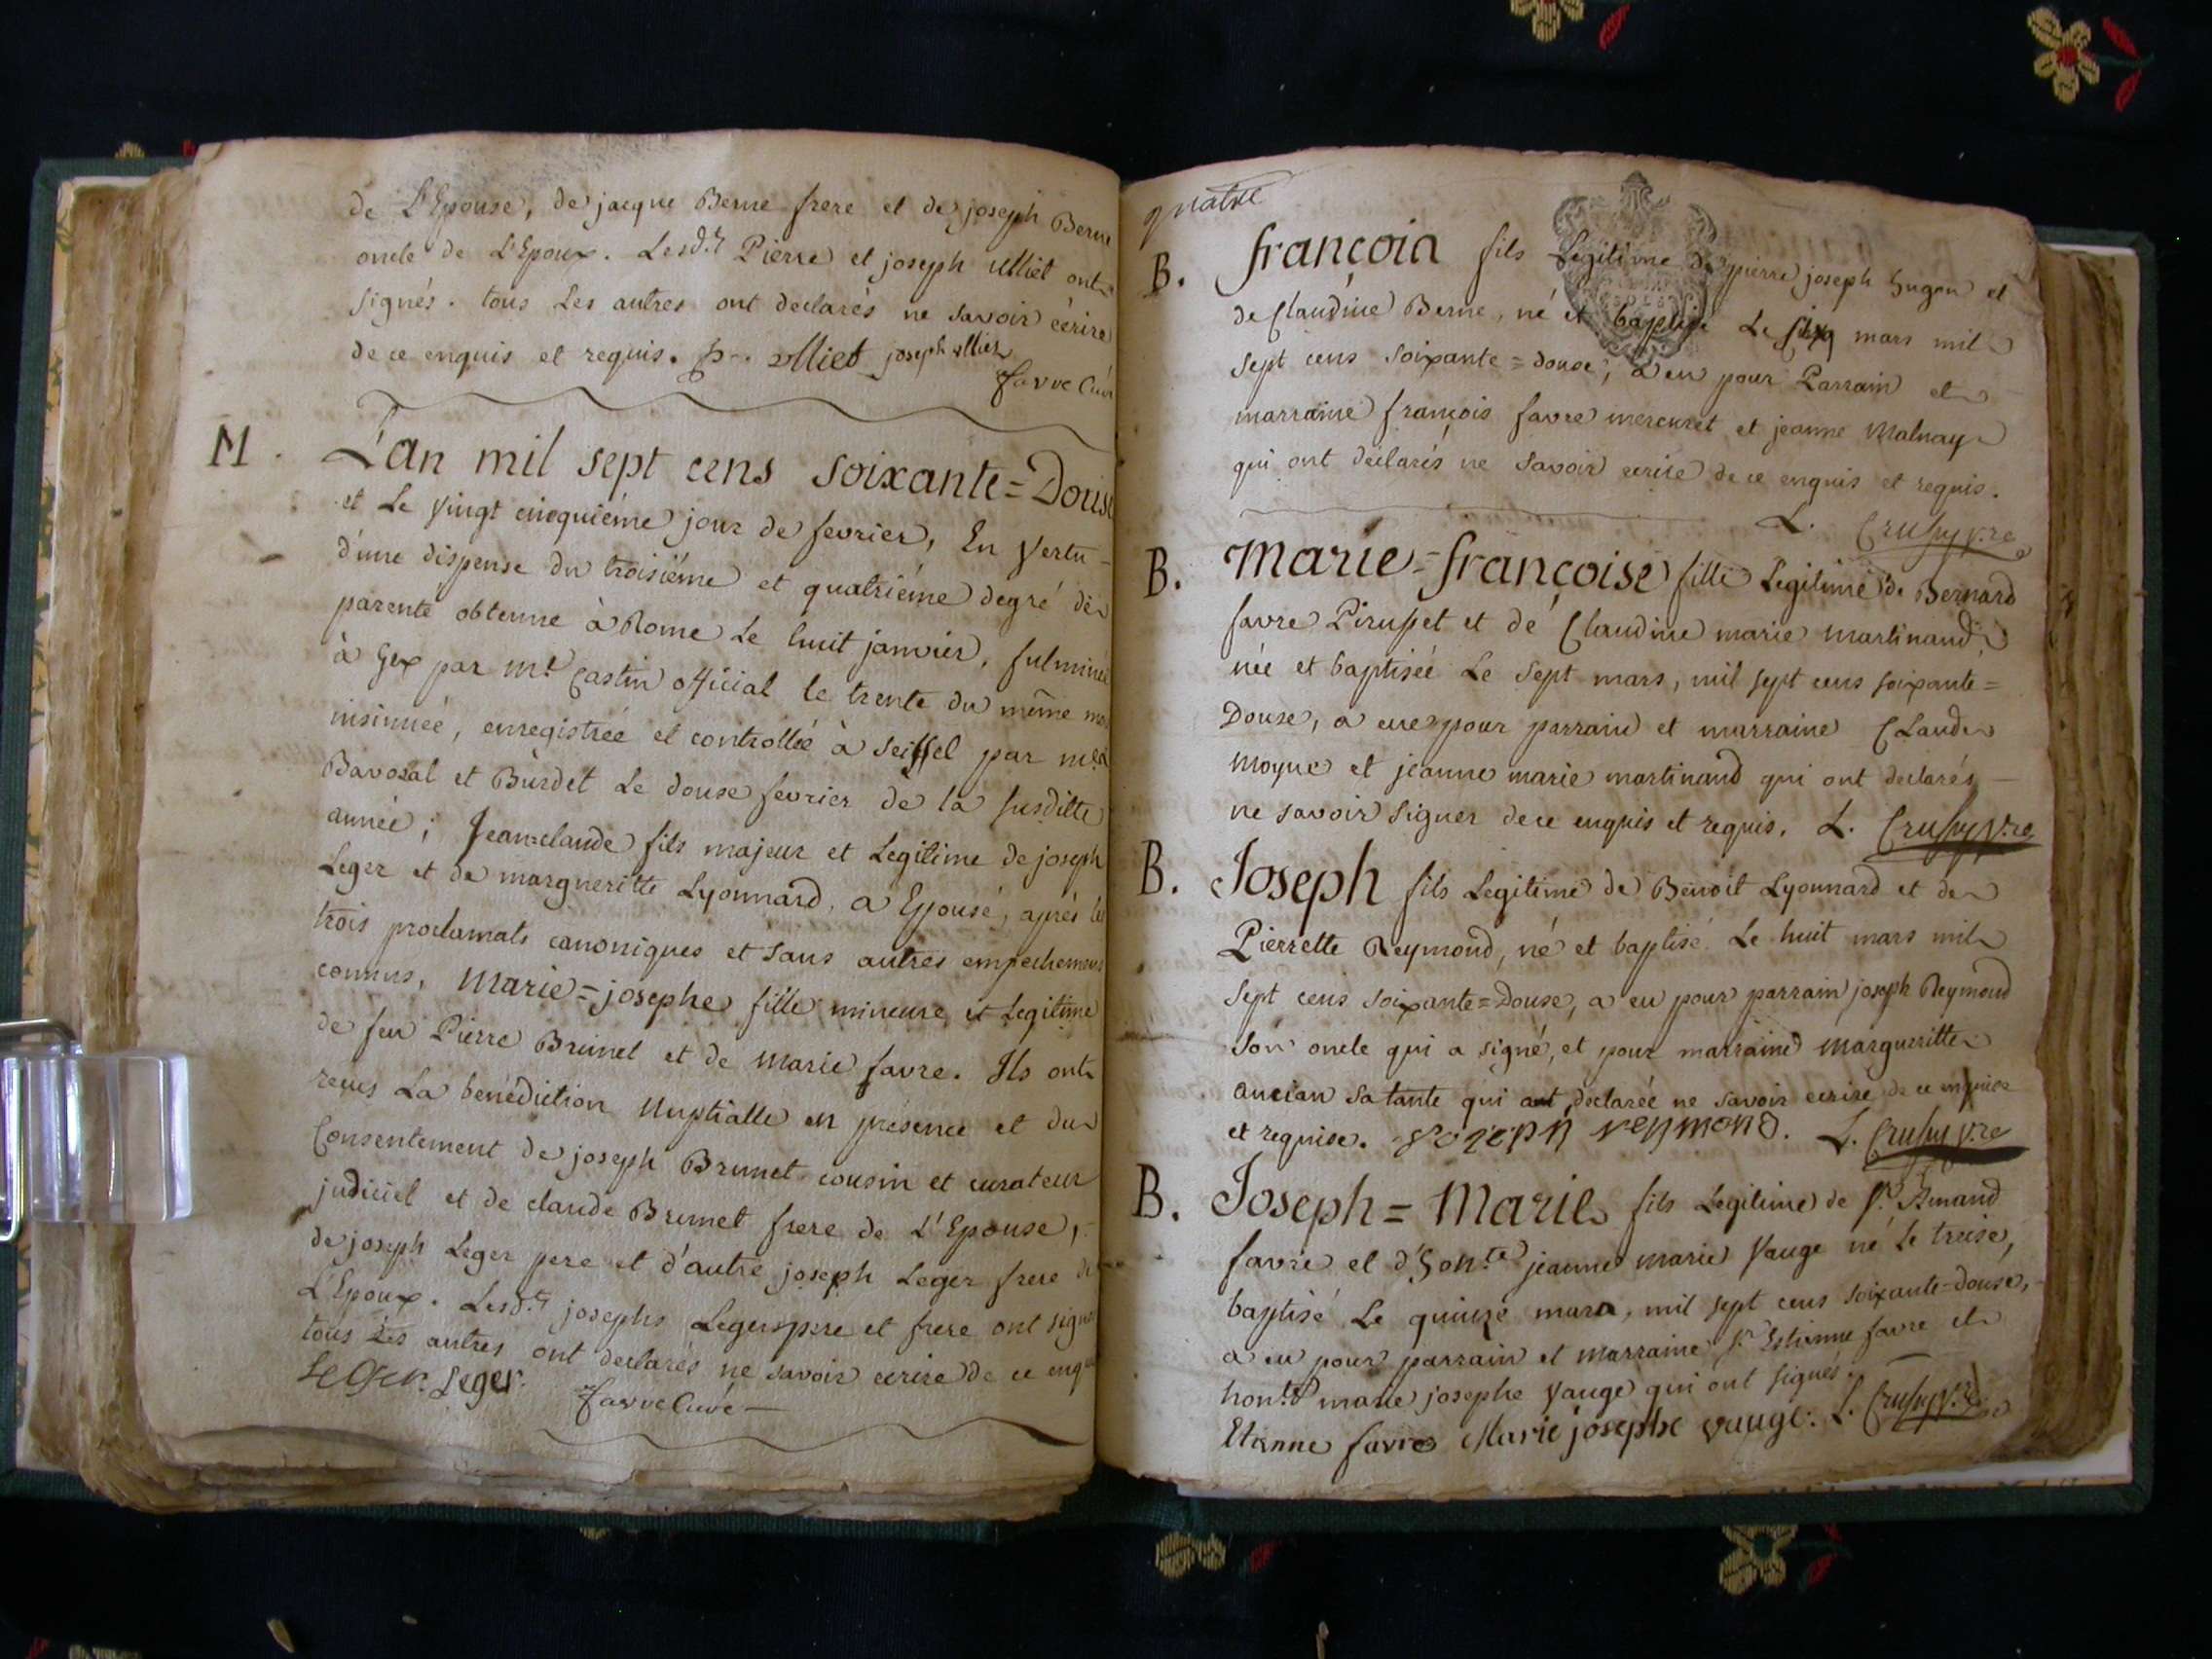 de L'Epouse, de jacque Berne frere et de joseph Berne
oncle de L'Epoux. Lesd.ts Pierre et joseph ulliet ont
signés. tous Les autres ont declarés ne savoir écrire
de ce enquis et requis. p. ulliet joseph ulliet
favre Curé
M. L'an mil sept cens soixante=Douse
et Le vingt cinquiéme jour de fevrier, En vertu
d'une dispense du troisiéme et quatriéme degré de
parenté obtenue à Rome Le huit janvier, fulminée
à Gex par m.e Castin official le trente du même mois
insinuée, enregistrée et controllée à Seissel par m.es
Bavozal et Burdet Le douse fevrier de la susditte
année; Jeanclaude fils majeur et Legitime de joseph
Leger et de margueritte Lyonnard, a Epousé, aprés les
trois proclamats canoniques et sans autres empechemens
connus, Marie=josephe fille mineure et Legitime
de feu Pierre Brunet et de Marie favre. Ils ont
reçus La benédiction Nuptialle en présence et du
Consentement de joseph Brunet cousin et curateur
judiciel et de claude Brunet frere de L'Epouse,
de joseph Leger pere et d'autre joseph Leger frere de
L'Epoux. Lesd.ts josephs Leger pere et frere ont signé
tous Les autres ont declarés ne savoir ecrire de ce enquis
Leger. Leger.
favre Curé
quatre
B. françois fils Legitime de pierre joseph hugon et
de Claudine Berne, né et baptisé Le six mars mil
sept cens soixante=douse, a eu pour Parrain et
marraine françois favre mercuret et jeanne Malnay
qui ont declarés ne savoir ecrire de ce enquis et requis.
L. Crussy v.re
B. Marie=françoise fille Legitime de Bernard
favre Pirusset et dé Claudine marie martinand,
née et baptisée Le sept mars, mil sept cens soixante=
Douse, a eue pour parrain et marraine Claude
Moyne et jeanne marie martinand qui ont declarés
ne savoir signer de ce enquis et requis. L. Crussy v.re
B. Joseph fils Legitime de Benoit Lyonnard et de
Pierrette Reymond, né et baptisé Le huit mars mil
sept cens soixante=Douse, a eu pour parrain joseph Reymond
son oncle qui a signé, et pour marraine margueritte
ancian sa tante qui a declarée ne savoir ecrire de ce enquise
et requise. joseph reymond. L. Crussy v.re
B. Joseph=Marie fils Legitime de s.r Amand
favre et d'hon.te jeanne marie Vauge né le treise,
baptisé Le quinze mars, mil sept cens soixante-douse,
a eu pour parrain et marraine s.r Estienne favre et
hon.te marie josephe Vauge qui ont signés.
Etienne favre Marie josephe vauge. L. Crussy v.re